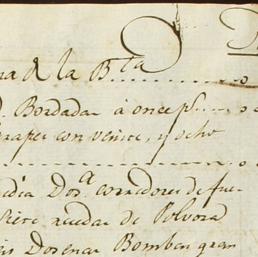 na de la B.ta
Bordadas à once ps
con veinte, y ocho
Dos.a corredores de fue
Siete ruedas de Polvora
Dosenas Bombas gran